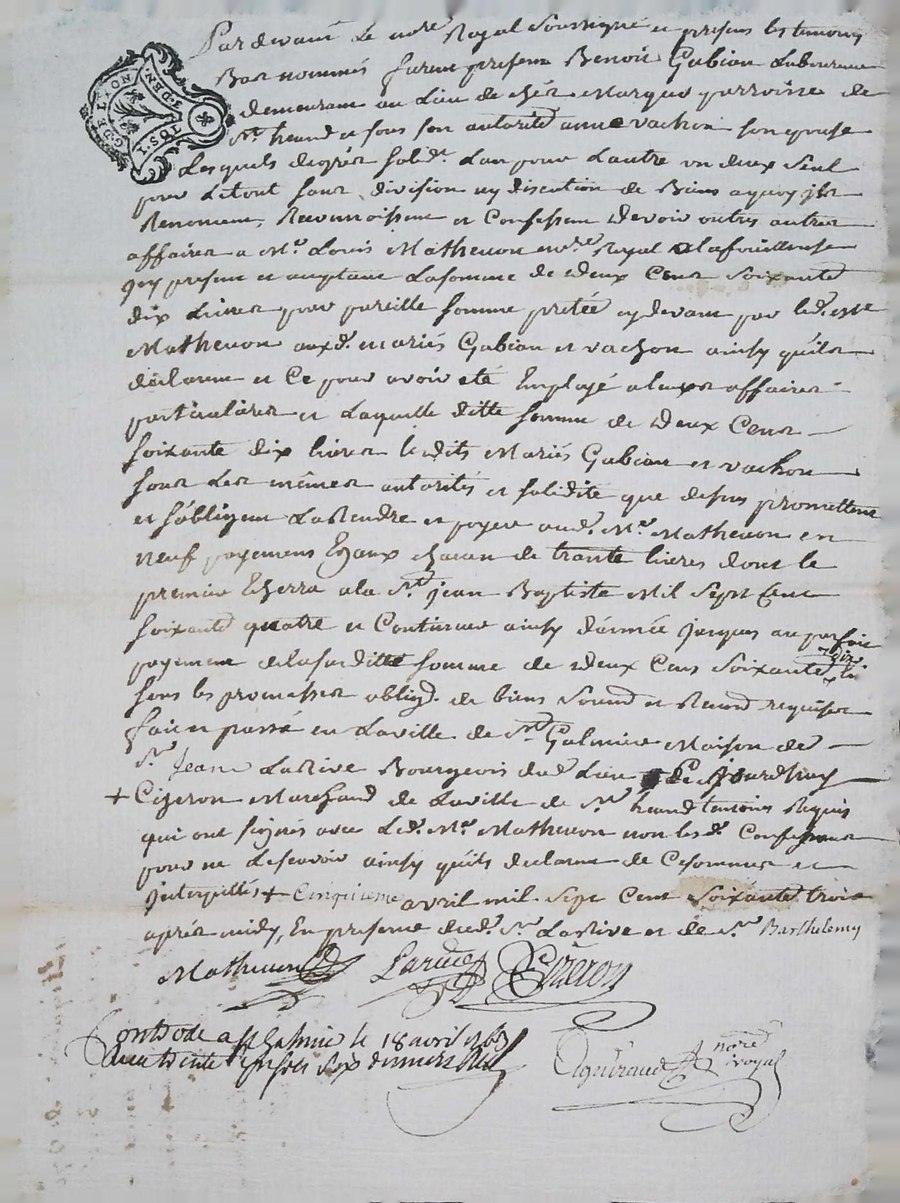 Pardevant Le no.re Royal Soussigné et presens les temoins
Bas nommés furent presens Benoit Gabian Laboureur
demeurant au Lieu de chés Marque parroisse de
St. heand et sous son autorité anne vachon son epouse
GDE LYON
1. SOL
3. DEN.
Lesquels de gré solid.t L'un pour L'autre un deux seul
pour Le tout sans division ny discution de Biens a quoy ils
Renoncent, Reconnoissent et Confessent devoir outres autres
affaires a Me. Louis Mathevon Royal a lafouillouse
icy present et acceptant La somme de deux Cens soixante
dix Livres pour pareille somme pretée cy devant par led.
Mathevon auxd. mariés Gabian et vachon ainsy qu'ils
declarent et Ce pour avoir eté Employé a leurs affaires
particulières et Laquelle ditte somme de deux Cens
soixante dix livres lesdits Mariés Gabian et vachon
sous Les mêmes autorités et solidité que dessus promettent
et s'obligent La Rendre et payer aud. Me. Mathevon en
neuf payemens Egaux chacun de trante livres dont le
premier Echerra a la St. jean Baptiste Mil Sept Cent
soixante quatre et Continuer ainsy d'année jusques au parfait
payement de la susditte somme de deux Cens soixante dix
sous les promesses oblig. de biens et Renond. requises
fait et passé en La ville de St. Galmier Maison de
Sr. Jean Larive Bourgeois dud. Lieu Ce jourdhuy
+ Cizeron Marchand de La ville de St. heand temoins Requis
qui ont signés avec Led. Me. Mathevon non les d. Confessans
pour ne Le sçavoir ainsy qu'ils declarent de Ce sommés et
Interpellés + Cinquieme avril mil sept Cent soixante trois
après midy, En presence dud. Sr. Larive et de Sr. Barthelemy
Mathevon Larive Cizeron
Controlé a St Galmier le 18 avril 1763
trente sols six deniers
nore royal